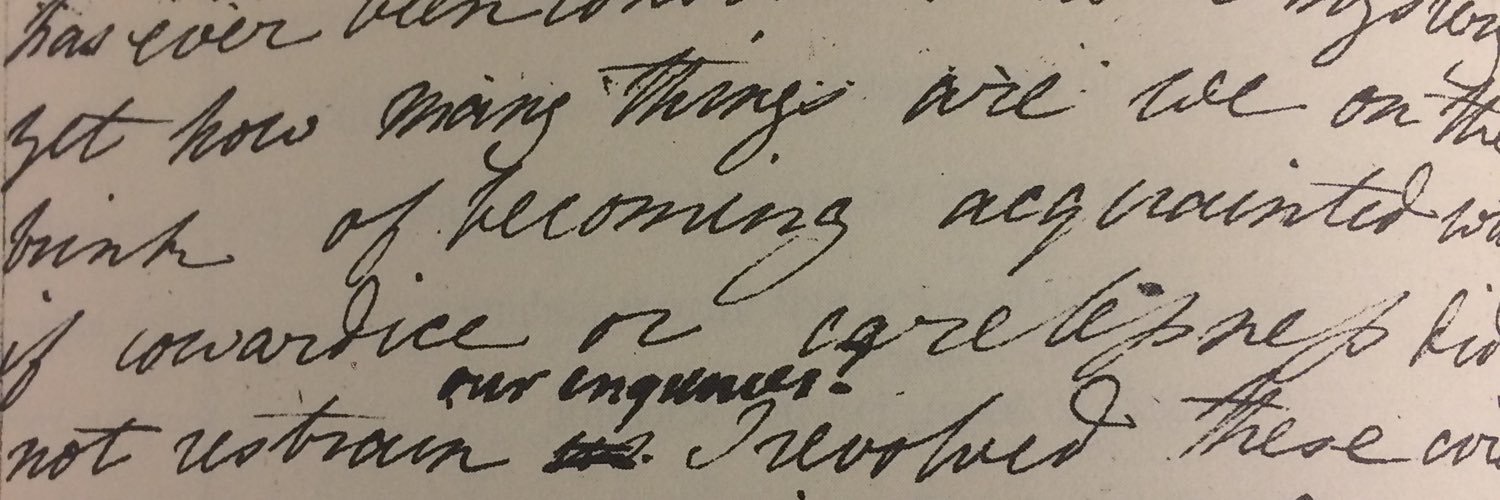 has ever been
yet how many things are we on the
brink of becoming acquainted
if cowardice or carelessness did
our inquiries.
not restrain I revolved these